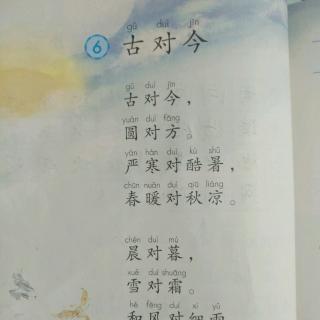 gǔ duì jīn
6 古对今
gǔ duì jīn
古对今，
yuán duì fāng
圆对方。
yán hán duì kù shǔ
严寒对酷暑，
chūn nuǎn duì qiū liáng
春暖对秋凉。
chén duì mù
晨对暮，
xuě duì shuāng
雪对霜。
hé fēng duì xì yǔ
和风对细雨